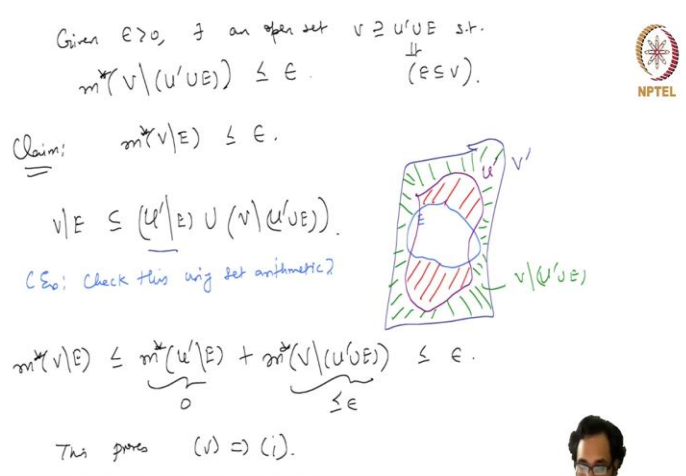 Given ϵ>0, ∃ an open set V ⊇ U'∪E s.t.
m*(V\(U'∪E)) ≤ ϵ.
⇓
(E⊆V).
NPTEL
Claim: m*(V\E) ≤ ϵ.
V\E ⊆ (U'\E) ∪ (V\(U'∪E)).
(Exo: Check this using set arithmetic)
V'
U'
E
V\(U'∪E)
m*(V\E) ≤ m*(U'\E) + m*(V\(U'∪E)) ≤ ϵ.
0
≤ϵ
This proves (v) ⇒ (i).